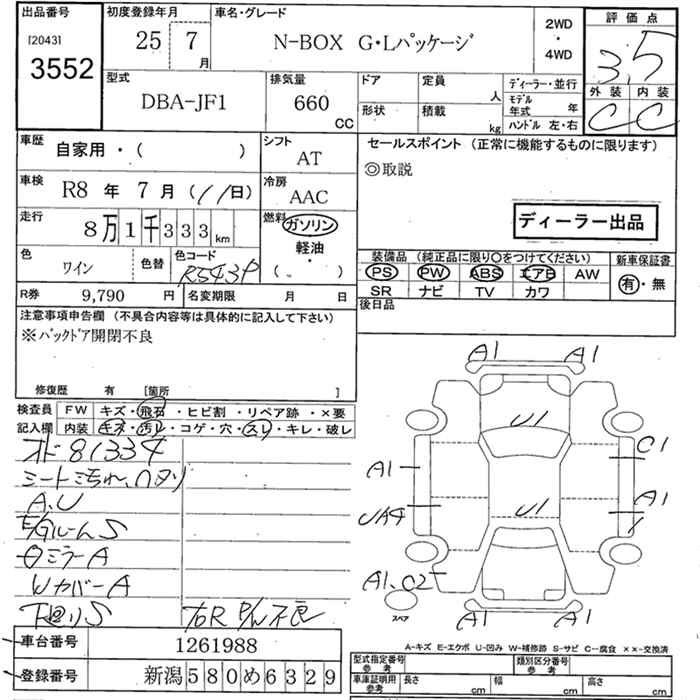 出品番号
[2043]
3552
初度登録年月
25 7 月
車名・グレード
N-BOX G・Lパッケージ
2WD
・
4WD
評価点
3.5
外装 内装
C C
型式
DBA-JF1
排気量
660 CC
ドア
形状
定員 人
積載 kg
ディーラー・並行
モデル年式 年
ハンドル 左・右
車歴
自家用・( )
シフト
AT
セールスポイント (正常に機能するものに限ります)
◎取説
ディーラー出品
車検
R8 年 7 月 (11日)
冷房
AAC
走行
8万1千333km
燃料
ガソリン
軽油・
( )
色
ワイン
色替
色コード
R543P
装備品 (純正品に限り○をつけてください)
PS PW ABS エアB AW
SR ナビ TV カワ
新車保証書
有・無
R券 9,790 円
名変期限 月 日
後日品
注意事項申告欄 (不具合内容等は具体的に記入して下さい)
※バックドア開閉不良
修復歴 有 [箇所 ]
検査員記入欄
FW キズ・飛石・ヒビ割・リペア跡・×要
内装 キズ・汚れ・コゲ・穴・スレ・キレ・破レ
オド81334
シート汚れ、ハタリ
A、U
E/GルームS
ミラーA
WカバーA
下回りS
右R
不良
A1 A1
U1
C1
A1
A1
U1
UA4
A1、C2
スペア
A1 A1
車台番号 1261988
登録番号 新潟580め6329
A-キズ E-エクボ U-凹み W-補修跡 S-サビ C-腐食 ××-交換済
型式指定番号 参考
類別区分番号 参考
車庫証明用 参考
長さ cm
幅 cm
高さ cm